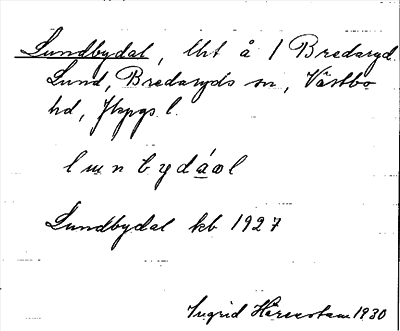 Lundbydal, lht å 1 Bredaryd
Lund, Bredaryds sn, Västbo
hd, Jkpgs l.
l u n b y d á œ l
Lundbydal kb 1927
Ingrid 1930